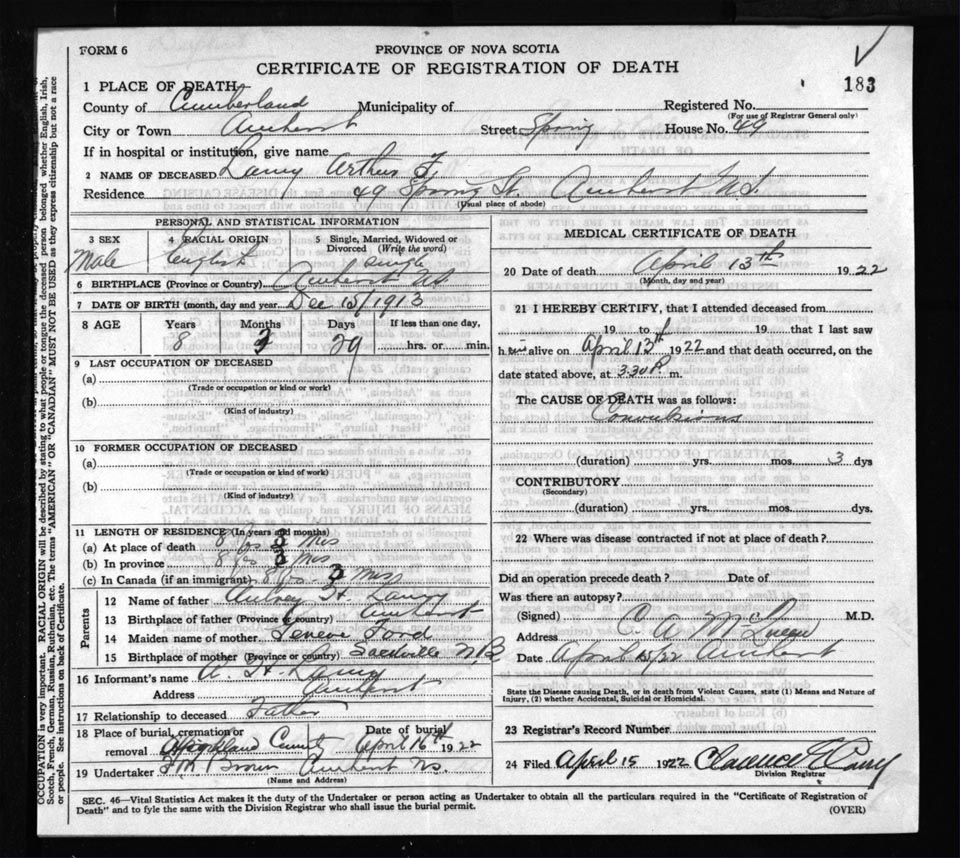 FORM 6
PROVINCE OF NOVA SCOTIA
CERTIFICATE OF REGISTRATION OF DEATH
183
1 PLACE OF DEATH
County of Cumberland Municipality of Registered No.
(For use of Registrar General only)
City or Town Amherst Street Spring House No. 49
If in hospital or institution, give name
2 NAME OF DECEASED Arthur F
Residence 49 Spring St. Amherst N.S.
(Usual place of abode)
PERSONAL AND STATISTICAL INFORMATION
3 SEX Male
4 RACIAL ORIGIN English
5 Single, Married, Widowed or Divorced (Write the word) single
6 BIRTHPLACE (Province or Country) Amherst NS
7 DATE OF BIRTH (month, day and year) Dec 15/1913
8 AGE Years Months Days If less than one day,
8 3 29 hrs. or min.
9 LAST OCCUPATION OF DECEASED
(a)
(Trade or occupation or kind or work)
(b)
(Kind of industry)
10 FORMER OCCUPATION OF DECEASED
(a)
(Trade or occupation or kind of work)
(b)
(Kind of industry)
11 LENGTH OF RESIDENCE (In years and months)
(a) At place of death 8 yrs 3 mos
(b) In province 8 yrs 3 mos
(c) In Canada (if an immigrant) 8 yrs. 3 mos
Parents
12 Name of father Aubrey H
13 Birthplace of father (Province or country) Amherst
14 Maiden name of mother Ford
15 Birthplace of mother (Province or country) Sackville N.B
16 Informant's name A. H.
Address Amherst
17 Relationship to deceased Father
18 Place of burial, cremation or removal Highland Date of burial April 16th 1922
19 Undertaker Brown Amherst Ns.
(Name and Address)
MEDICAL CERTIFICATE OF DEATH
20 Date of death April 13th 1922
(Month, day and year)
21 I HEREBY CERTIFY, that I attended deceased from
19 to 19 that I last saw
him alive on April 13th 1922 and that death occurred, on the
date stated above, at 3 30 P. m.
The CAUSE OF DEATH was as follows:
Convulsions
(duration) yrs. mos. 3 dys
CONTRIBUTORY
(Secondary)
(duration) yrs. mos. dys.
22 Where was disease contracted if not at place of death?
Did an operation precede death? Date of
Was there an autopsy?
(Signed) C. A. McQueen M.D.
Address
Date April 15/22 Amherst
State the Disease causing Death, or in death from Violent Causes, state (1) Means and Nature of
Injury, (2) whether Accidental, Suicidal or Homicidal.
23 Registrar's Record Number
24 Filed April 15 1922 Clarence
Division Registrar
SEC. 46—Vital Statistics Act makes it the duty of the Undertaker or person acting as Undertaker to obtain all the particulars required in the "Certificate of Registration of
Death" and to fyle the same with the Division Registrar who shall issue the burial permit.
(OVER)
OCCUPATION is very important. RACIAL ORIGIN will be described by stating to what people or tongue the deceased person belonged whether English, Irish,
Scotch, French, German, Russian, Ruthenian, etc. The terms "AMERICAN" OR "CANADIAN" MUST NOT BE USED as they express citizenship but not a race
or people. See instructions on back of Certificate.